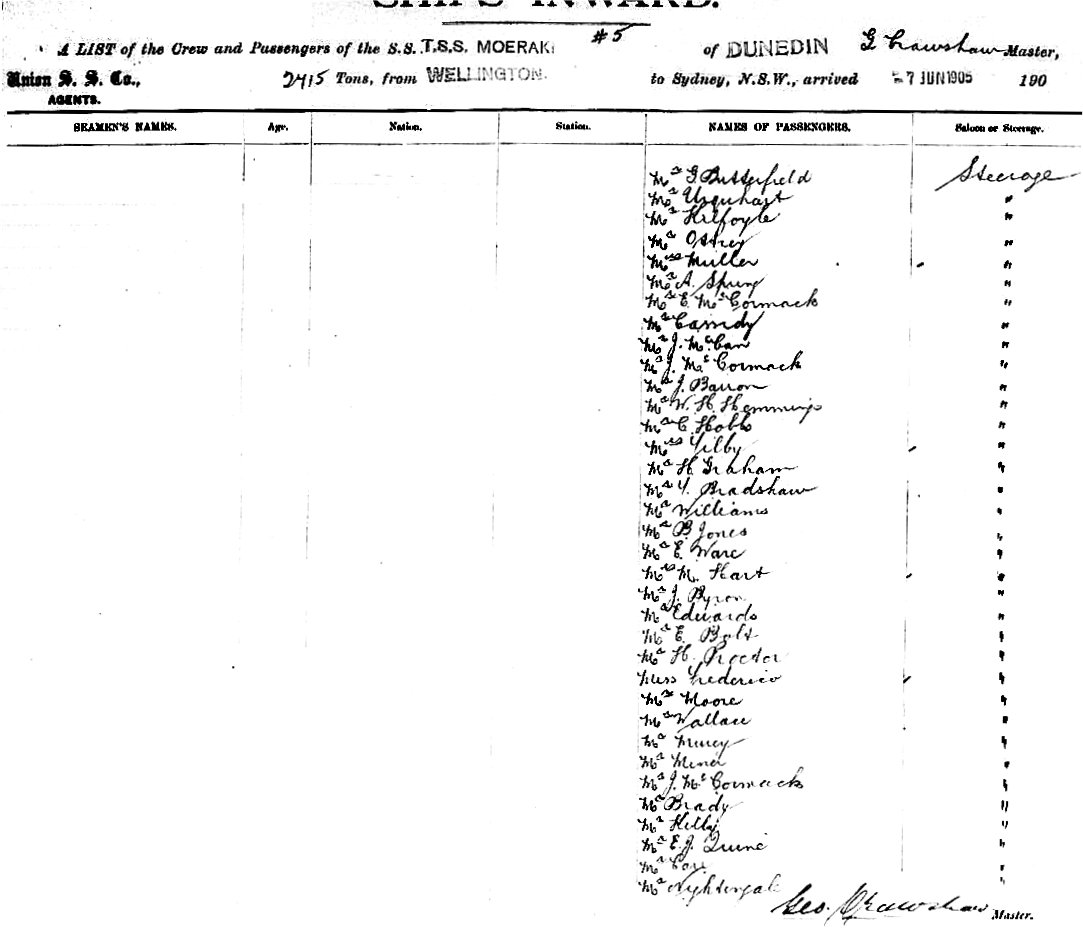 SHIPS INWARD.
#5
A LIST of the Crew and Passengers of the S.S. T.S.S. MOERAKI of DUNEDIN G Crawshaw Master,
Union S. S. Co., 2415 Tons, from WELLINGTON. to Sydney, N.S.W., arrived 7 JUN 1905 190
AGENTS.
SEAMEN'S NAMES. Age. Nation. Station. NAMES OF PASSENGERS. Saloon or Steerage.
Mr G Butterfield Steerage
Mr Urquhart "
Mr Kilfoyle "
Mr "
Mrs Muller "
Mr A. Spring "
Mr E. McCormack "
Mr Cassidy "
Mr J. McCan "
Mr J. McCormack "
Mr J. Barron "
Mr W. H. Hemmings "
Mr C Hobbs "
Mrs "
Mr H. Graham "
Mr Bradshaw "
Mr Williams "
Mr B Jones "
Mr E. Ware "
Mrs M. Hart "
Mr J. Byron "
Mr Edwards "
Mr E. Bolt "
Mr H. Proctor "
Miss Frederico "
Mr Moore "
Mr Wallace "
Mr "
Mr "
Mr J. McCormack "
Mr Brady "
Mr Kelly "
Mr E. J. Quine "
Mr "
Mr Nightengale "
Geo. Crawshaw Master.